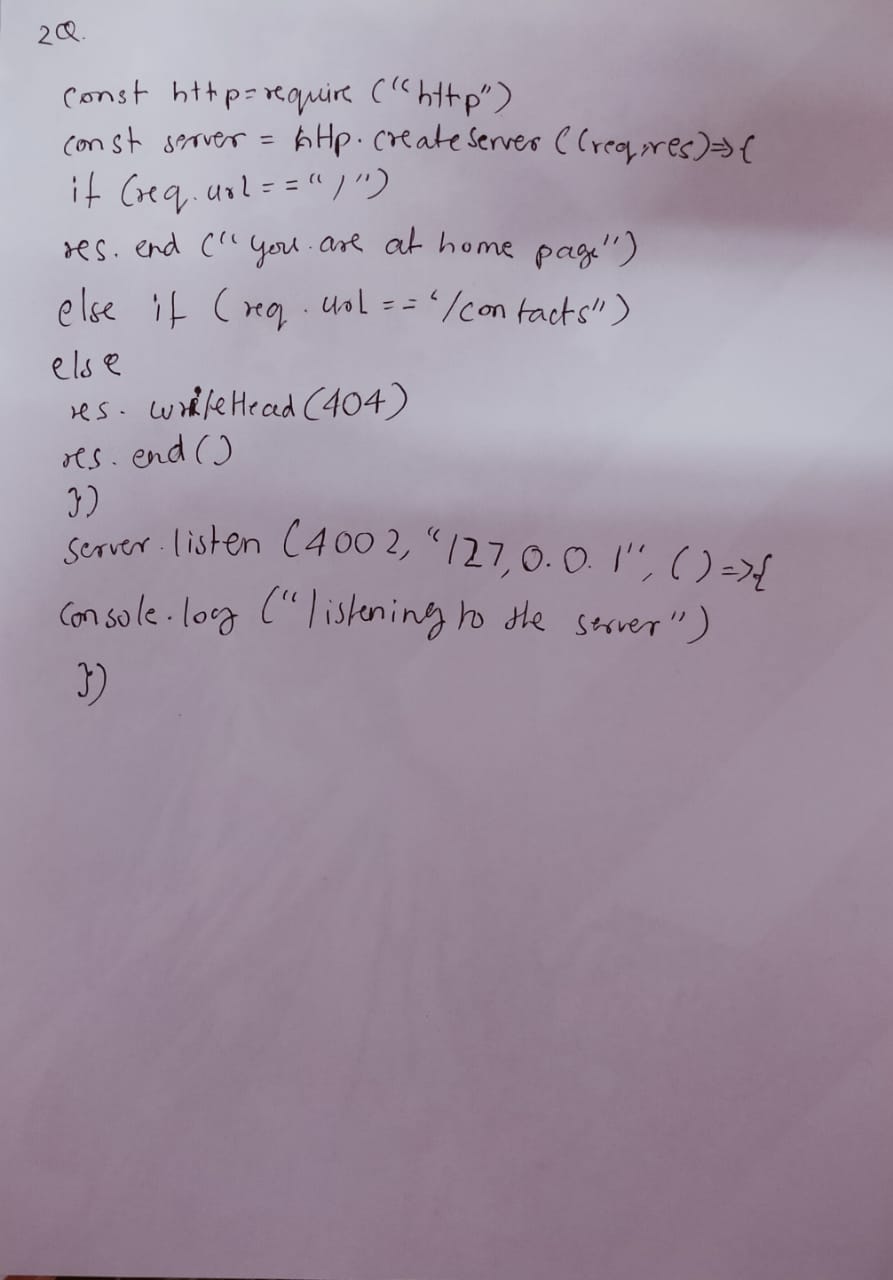 2Q.
const http=require ("http")
const server = http.createServer ((req,res)=>{
if (req.url=="/")
res.end ("you.are at home page")
else if (req.url=='/contacts")
else
res.writeHead(404)
res.end()
})
server.listen (4002, "127,0.0.1", ()=>{
console.log ("listening to the server")
})